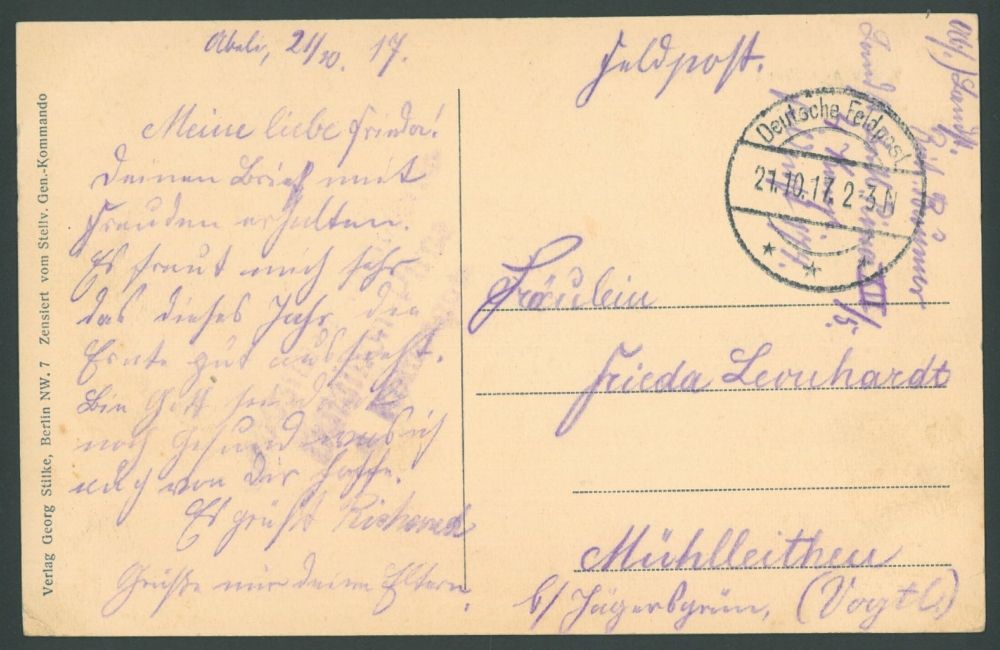 Abeli, 21/10. 17.
Meine liebe Frieda!
Deinen Brief mit
Freuden erhalten.
Es freut mich sehr
das dieses Jahr die
Ernte gut aussieht.
Bin Gott sei
noch Gesund was ich
auch von Dir hoffe.
Es grüßt Richard
Grüße mir deine Eltern.
Verlag Georg Stilke, Berlin NW. 7 Zensiert vom Stellv. Gen.-Kommando
Feldpost.
Deutsche Feldpost
21.10.17. 2-3 N
Fräulein
Frieda Leonhardt
Mühlleithen
b/ Jägersgrün, (Vogtl.)